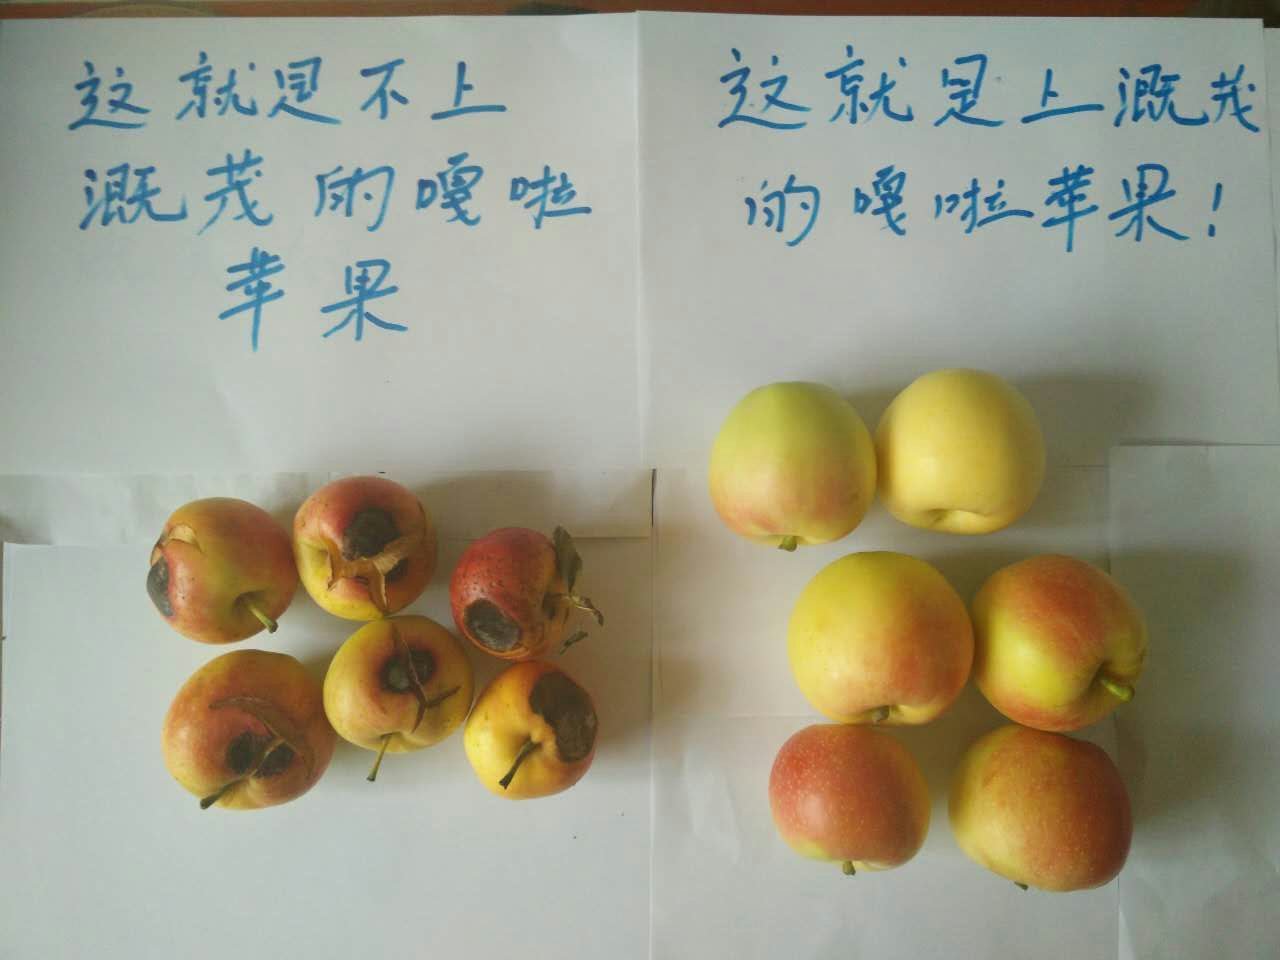 这就是不上
溉茂的嘎啦
苹果
这就是上溉茂
的嘎啦苹果！